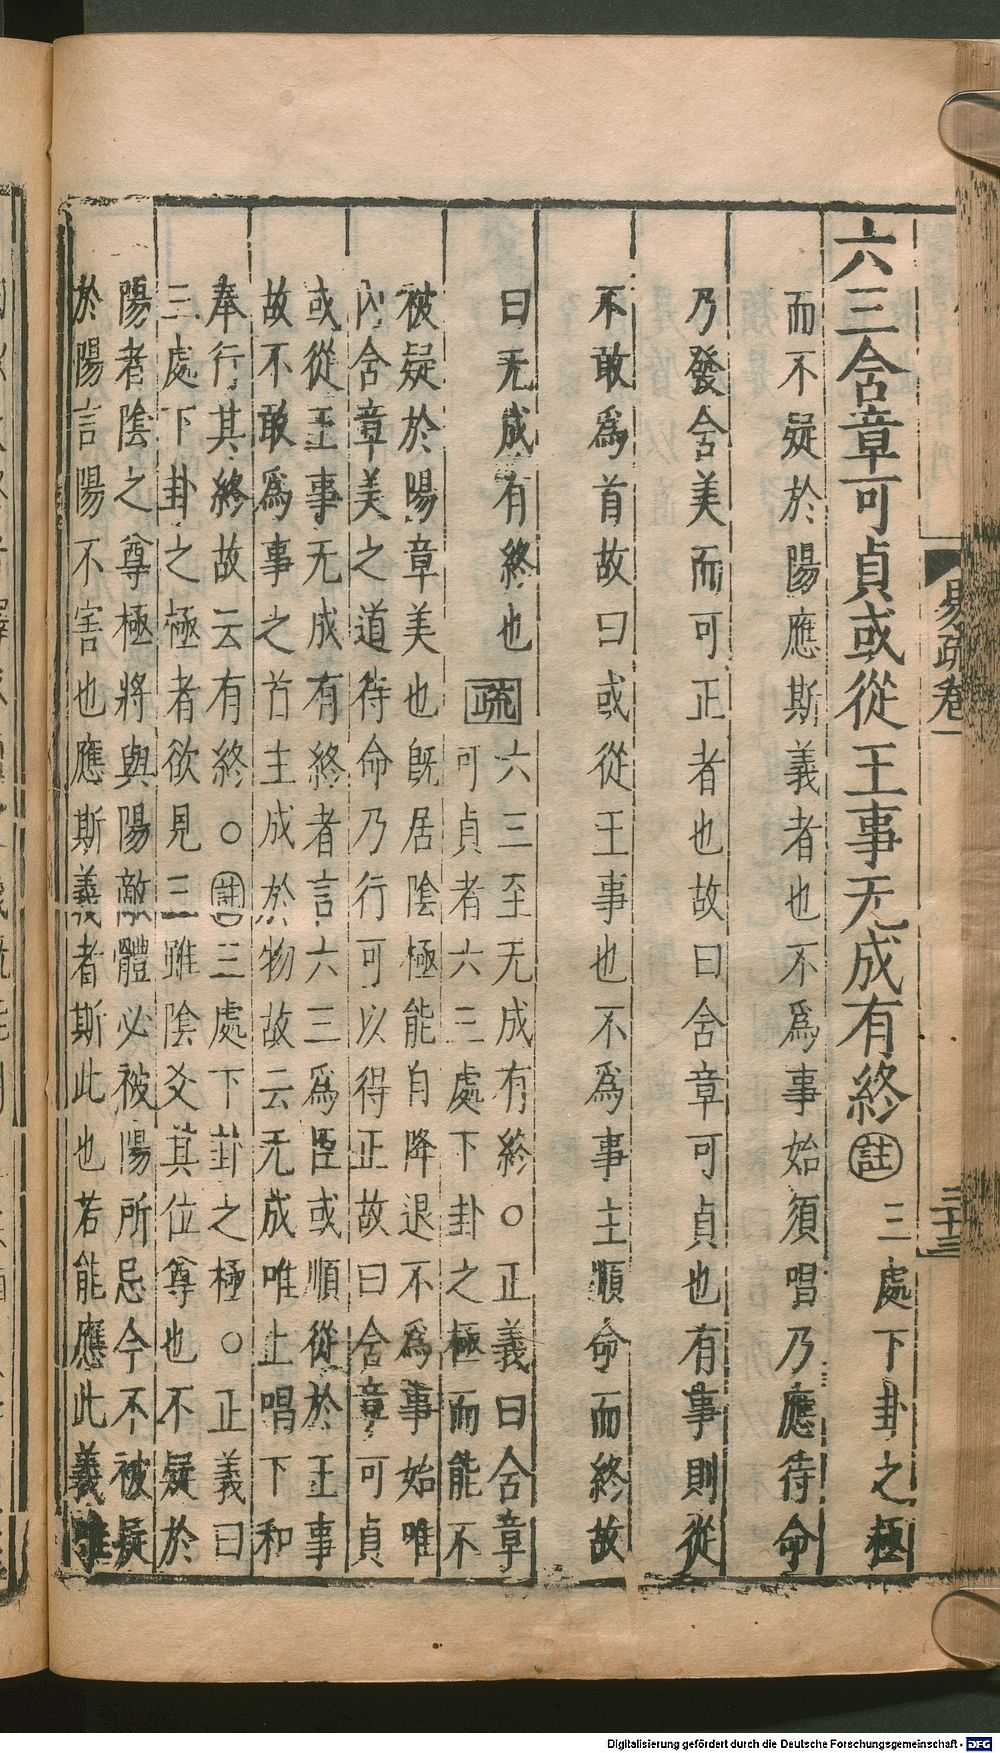 易疏卷一
三十三
六三含章可貞或從王事无成有終註三處下卦之極
而不疑於陽應斯義者也不為事始須唱乃應待命
乃發含美而可正者也故曰含章可貞也有事則從
不敢為首故曰或從王事也不為事主順命而終故
曰无成有終也疏六三至无成有終○正義曰含章
可貞者六三處下卦之極而能不
被疑於陽章美也既居陰極能自降退不為事始唯
內含章美之道待命乃行可以得正故曰含章可貞
或從王事无成有終者言六三為臣或順從於王事
故不敢為事之首主成於物故云无成唯上唱下和
奉行其終故云有終○註三處下卦之極○正義曰
三處下卦之極者欲見三雖陰爻其位尊也不疑於
陽者陰之尊極將與陽敵體必被陽所忌今不被疑
於陽言陽不害也應斯義者斯此也若能應此義唯
Digitalisierung gefördert durch die Deutsche Forschungsgemeinschaft - DFG